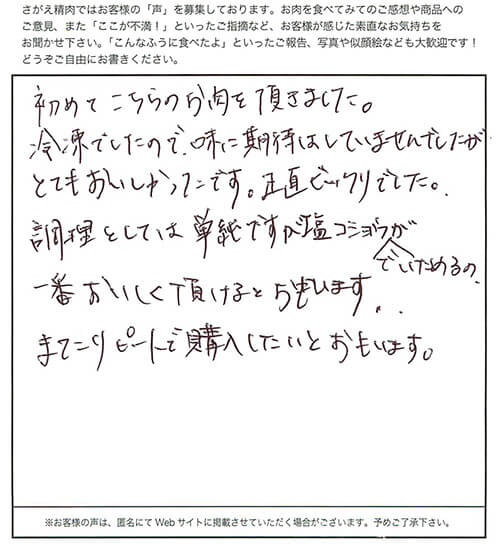 さがえ精肉ではお客様の「声」を募集しております。お肉を食べてみてのご感想や商品への
ご意見、また「ここが不満！」といったご指摘など、お客様が感じた素直なお気持ちを
お聞かせ下さい。「こんなふうに食べたよ」といったご報告、写真や似顔絵なども大歓迎です！
どうぞご自由にお書きください。
初めてこちらのお肉を頂きました。
冷凍でしたので、味に期待はしていませんでしたが
とてもおいしかったです。正直ビックリでした。
調理としては単純ですが塩コショウが
でいためるの
一番おいしく頂けると思います。
またリピートで購入したいとおもいます。
※お客様の声は、匿名にてWebサイトに掲載させていただく場合がございます。予めご了承下さい。